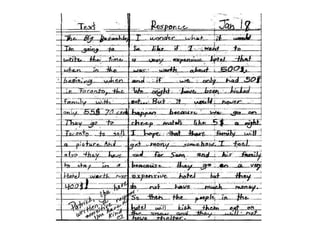 Text
Response
Jan 18
The Big
I'm going to
write the time
when in the
beginning when
in Toronto, the
family with
only 55$ 70 cents
They go to
Toronto to sell
a picture. And
also they have
to stay in a
Hotel worth over
400$!
I wonder what it would
be like if I went to
a very expensive hotel that
was worth about 500$,
and if we only had 50$
We might have been kicked
out... But it would never
happen because we go on
cheap motels like 5$ a night.
I hope that there family will
get money somehow. I feel
sad for Sam and his family
because they go on a very
expensive hotel but they
do not have much money.
So then the people in the
hotel will kick them out on
the snow and they will not
have shelter.
Patrick, you have
written